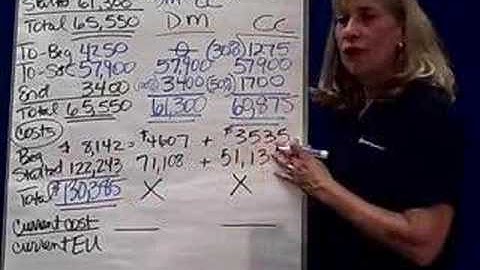 Started 61,300
Total 65,550 DM CC
To-Beg 4250 0 (30%) 1275
To-S&C 57,900 57,900 57,900
End 3400 3400 (50%) 1700
Total 65,550 61,300 60,875
Costs
Beg $8,142 = $4607 + $3535
Started 122,243 71,108 + 51,13
Total $130,385 X X
current cost
current EU